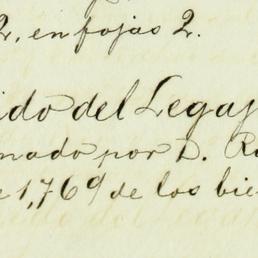 2, en fojas 2.
ido del Legaj
nado por D. Ra
e 1,769 de los bie